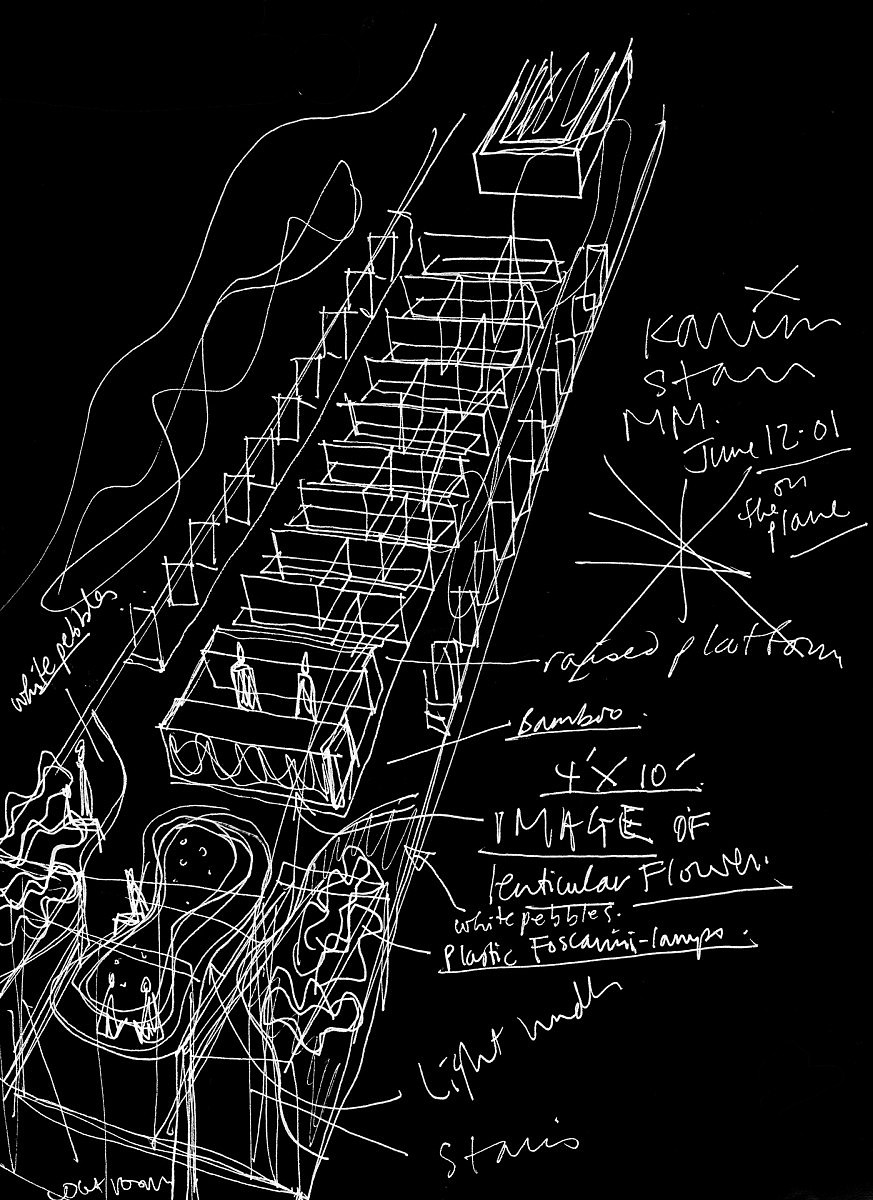 Karim
MM.
June 12-01
on
the
plane
white pebbles.
raised platform
Bamboo.
4' X 10'.
IMAGE OF
lenticular Flower.
white pebbles.
Plastic Foscarini-lamps.
Light under
Stairs
coat room